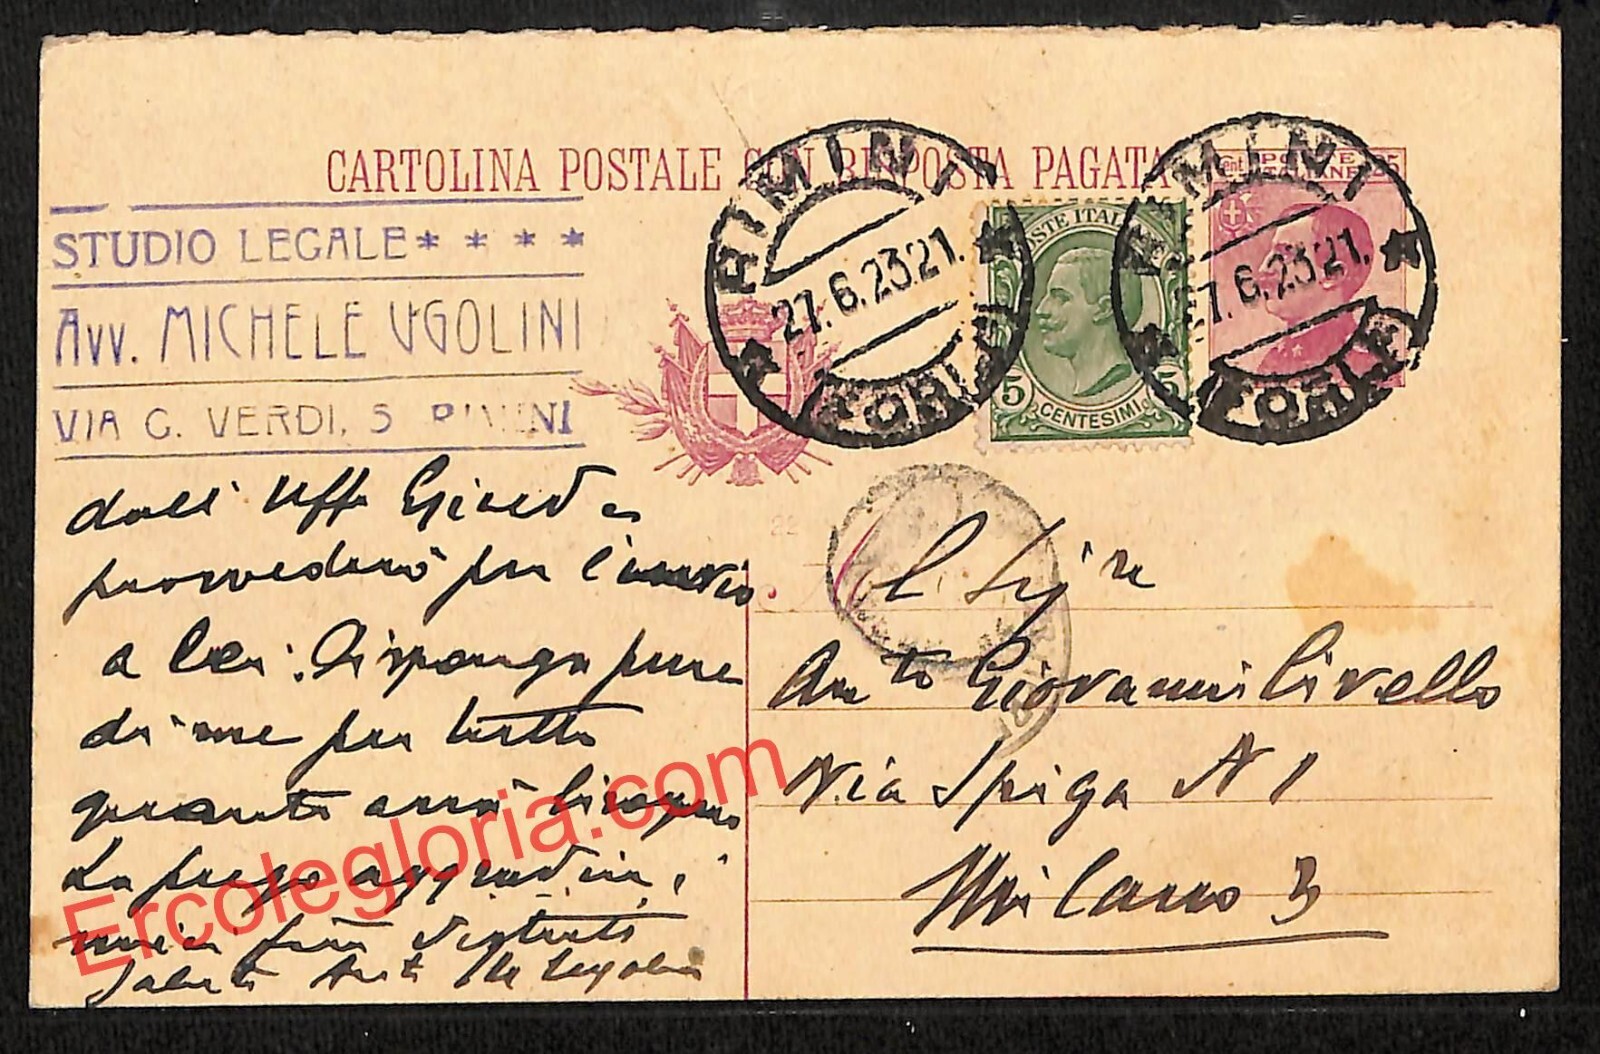 CARTOLINA POSTALE CON RISPOSTA PAGATA
STUDIO LEGALE * * * *
AVV. MICHELE UGOLINI
VIA G. VERDI, 5 RIMINI
RIMINI
27.6.23.21.
FORLI
POSTE ITALIANE
5
CENTESIMI
5
RIMINI
27.6.23.21.
FORLI
Cent. POSTE 25
ITALIANE
22
dall' Uff Giud
provvederò per l'invio
a Lei. Disponga pure
di me per tutto
quanto avrà bisogno
La prego aggradire i
miei più distinti
saluti Avv. M Ugolini
Ill Sigre
Giovanni Civello
Via Spiga N 1
Milano 3
Ercolegloria.com